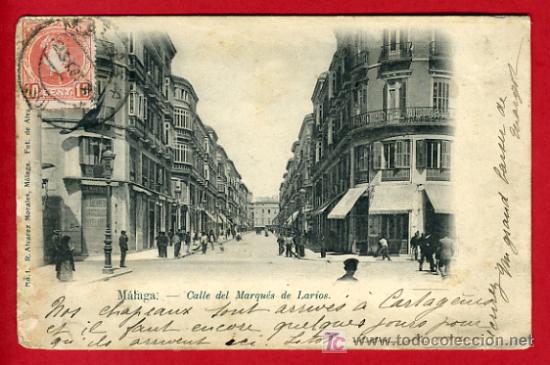 10 CENT. 10
No. 1. R. Alvarez Morales, Málaga. Fot. de
Málaga. — Calle del Marqués de Larios.
Nos chapeaux sont arrivés à Cartagena
et il faut encore quelques jours pour
qu'ils arrivent ici.
Un grand baiser de
Margot
todocoleccion